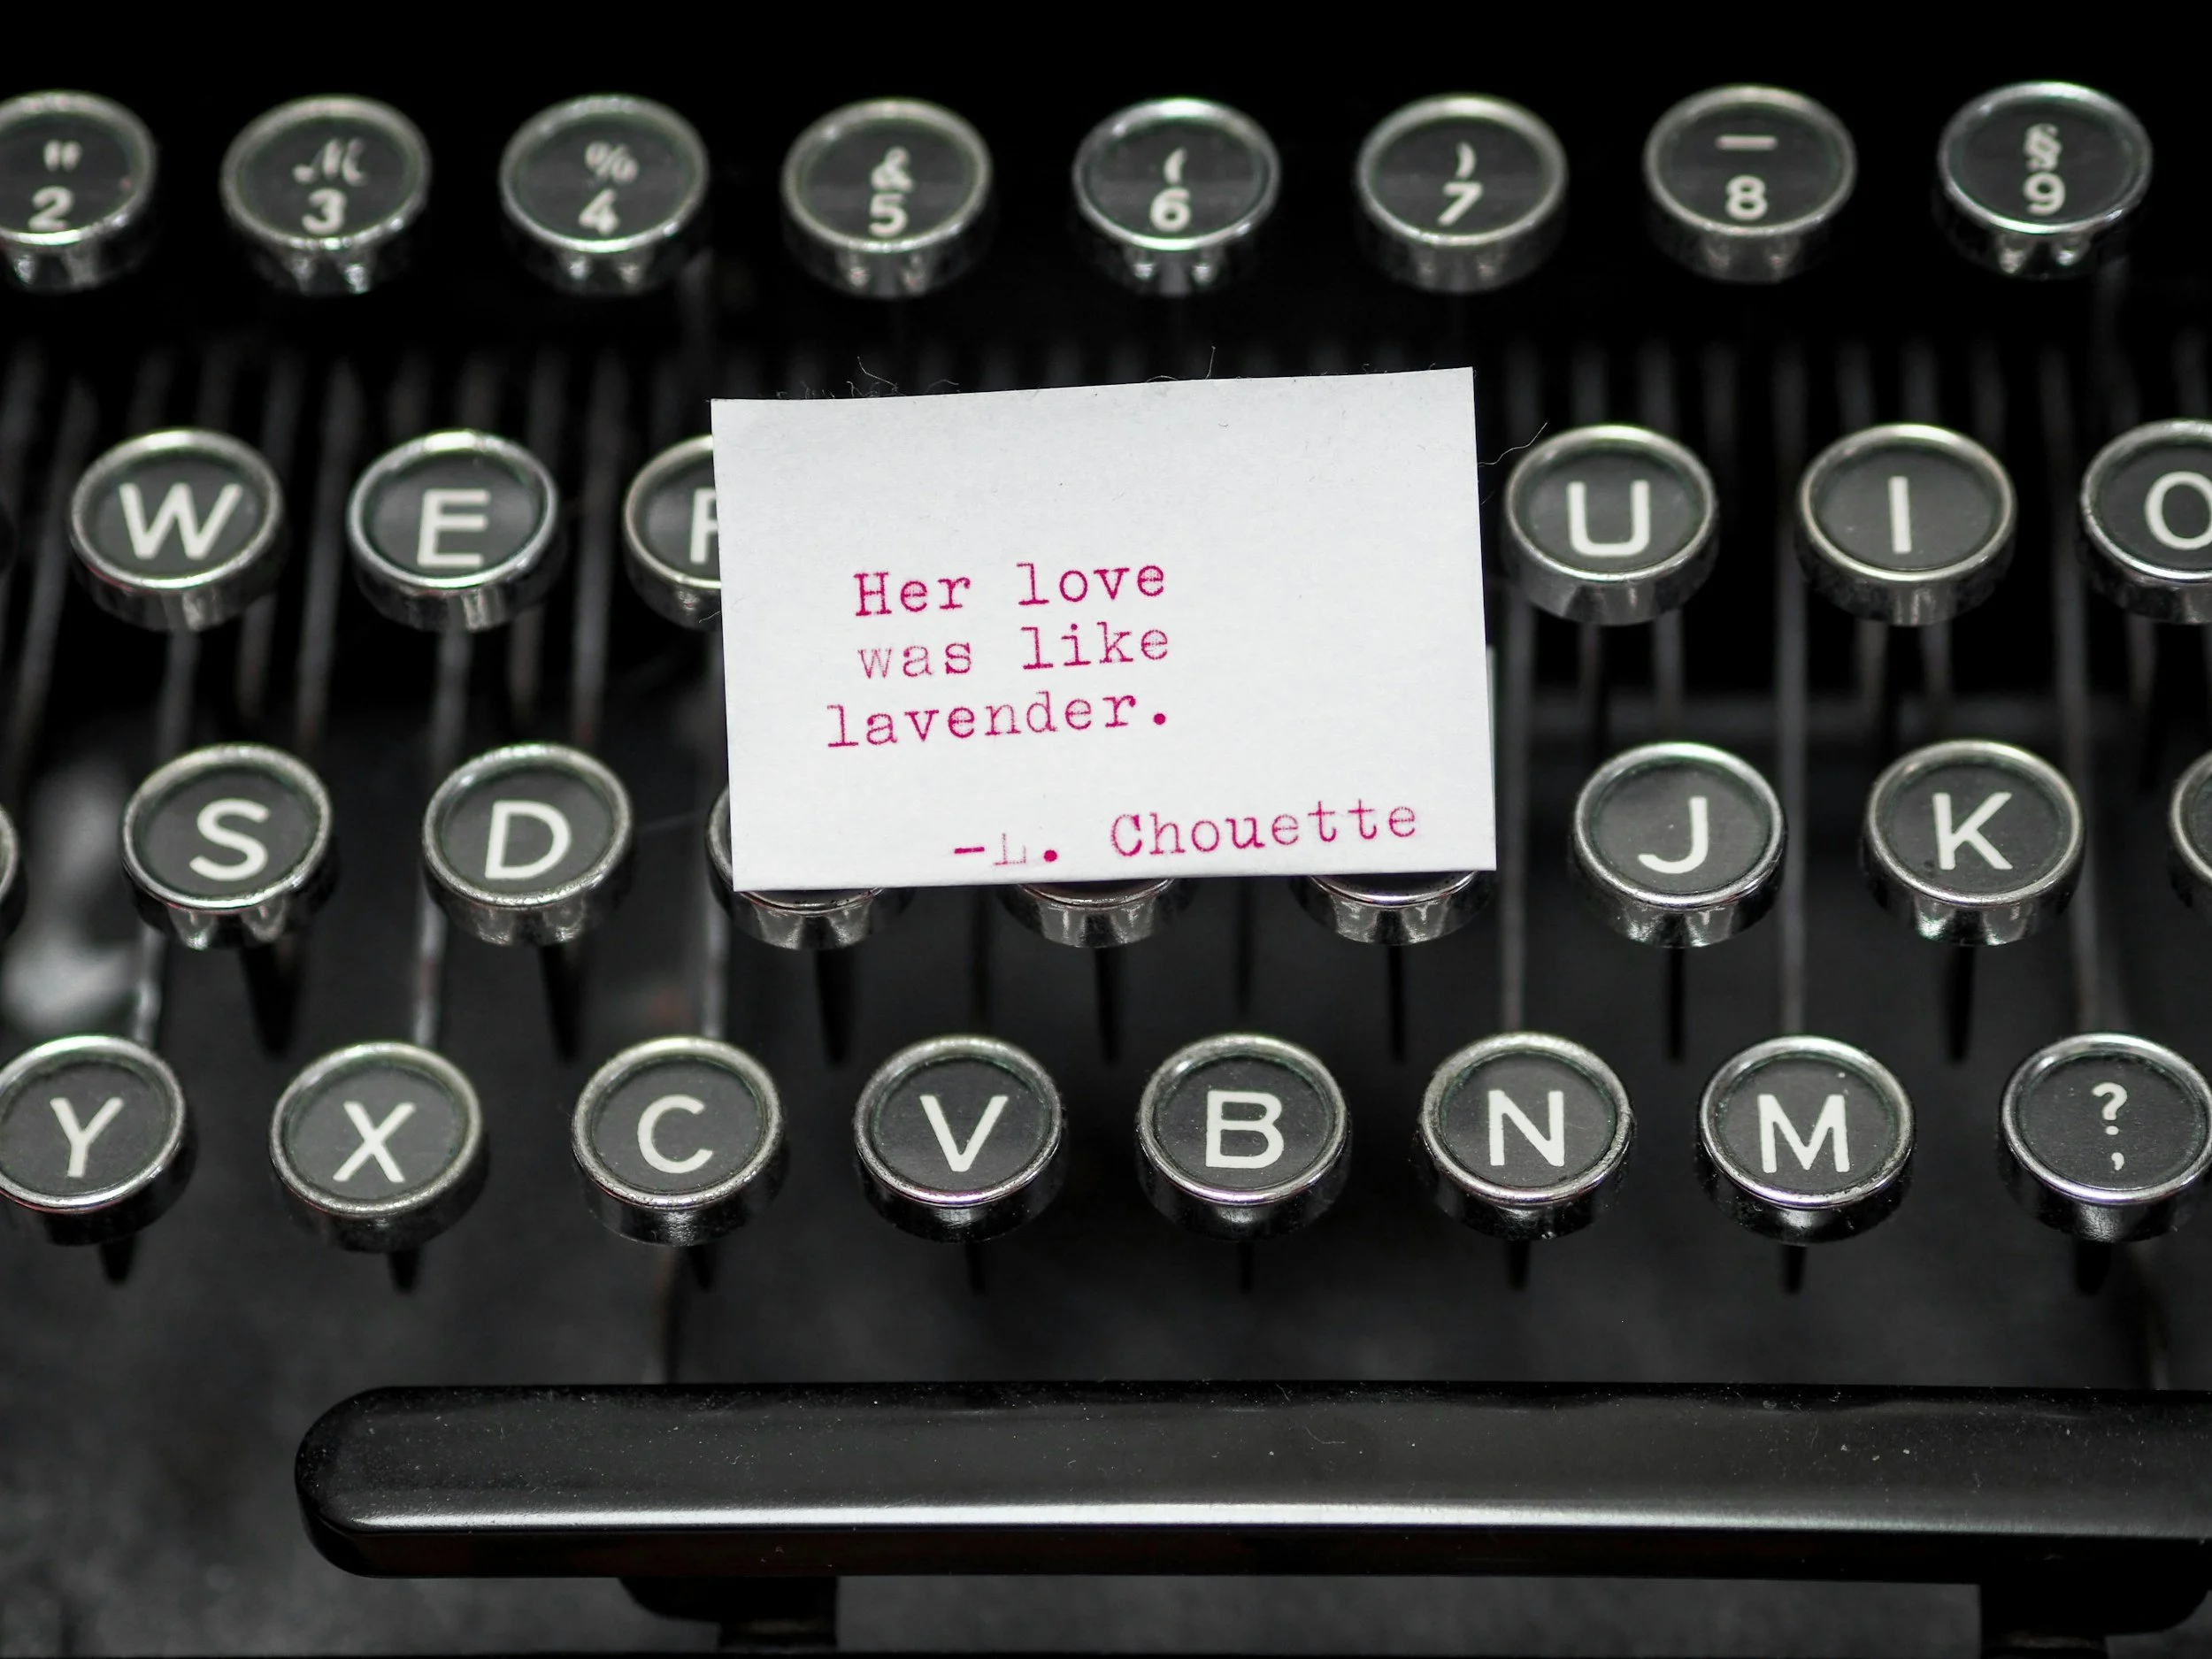 " ℳ % & ( ) — §
2 3 4 5 6 7 8 9
W E U I O
Her love
was like
lavender.
-L. Chouette
S D J K
Y X C V B N M ?
,